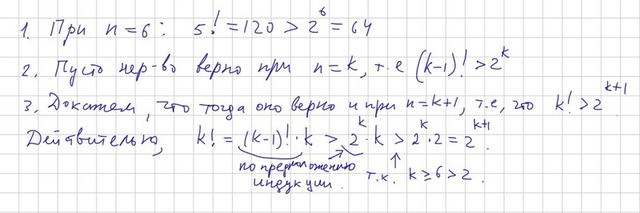 1. При n=6: 5! = 120 > 2^6 = 64
2. Пусть нер-во верно при n=k, т.е (k-1)! > 2^k
3. Докажем, что тогда оно верно и при n=k+1, т.е, что k! > 2^{k+1}
Действительно, k! = (k-1)!·k > 2^k·k > 2^k·2 = 2^{k+1}.
по предположению индукции. т.к. k ≥ 6 > 2.